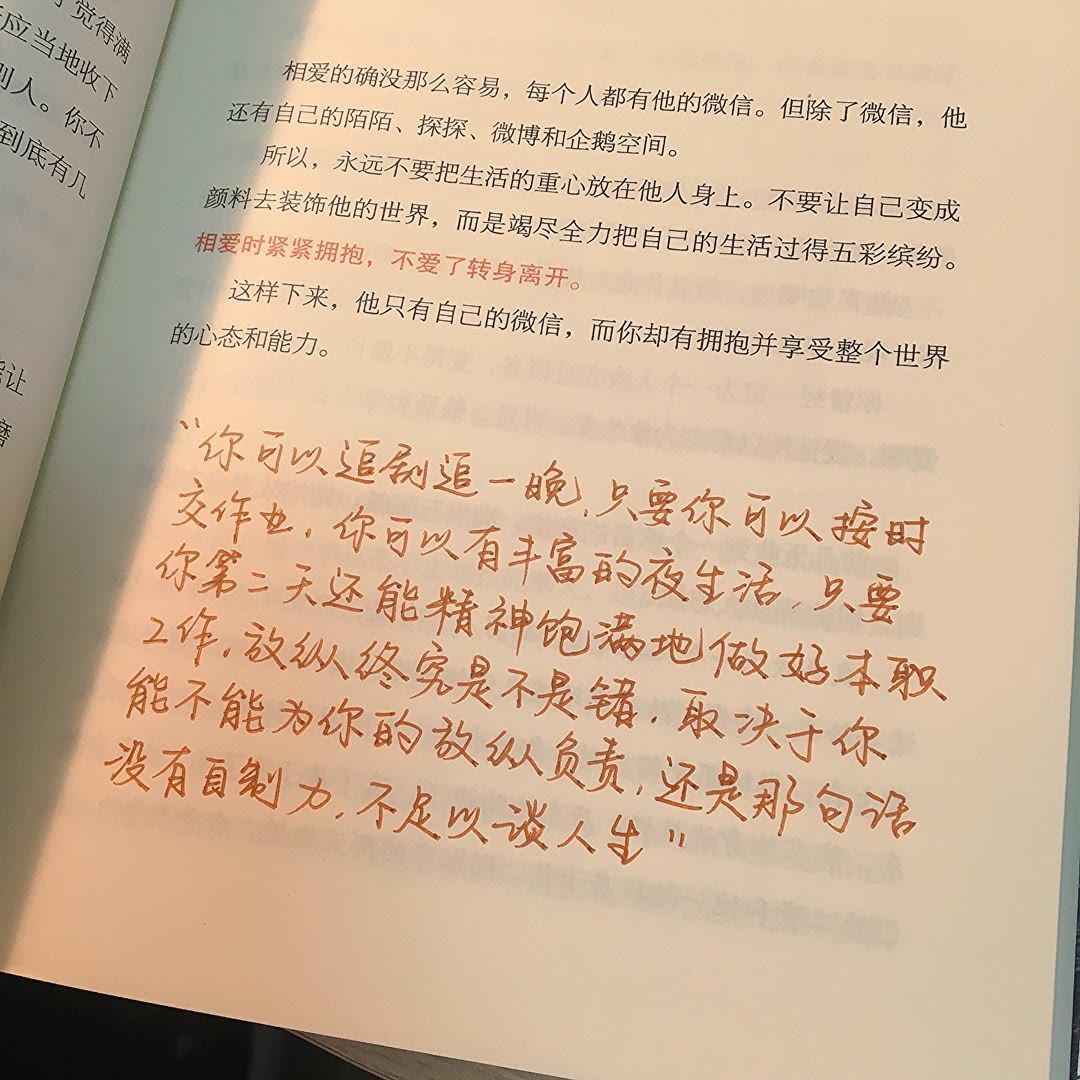 觉得满
应当地收下
别人。你不
到底有几
让
磨
相爱的确没那么容易，每个人都有他的微信。但除了微信，他
还有自己的陌陌、探探、微博和企鹅空间。
所以，永远不要把生活的重心放在他人身上。不要让自己变成
颜料去装饰他的世界，而是竭尽全力把自己的生活过得五彩缤纷。
相爱时紧紧拥抱，不爱了转身离开。
这样下来，他只有自己的微信，而你却有拥抱并享受整个世界
的心态和能力。
“你可以追剧追一晚，只要你可以按时
交作业，你可以有丰富的夜生活，只要
你第二天还能精神饱满地做好本职
工作，放纵终究是不是错，取决于你
能不能为你的放纵负责，还是那句话
没有自制力，不足以谈人生”